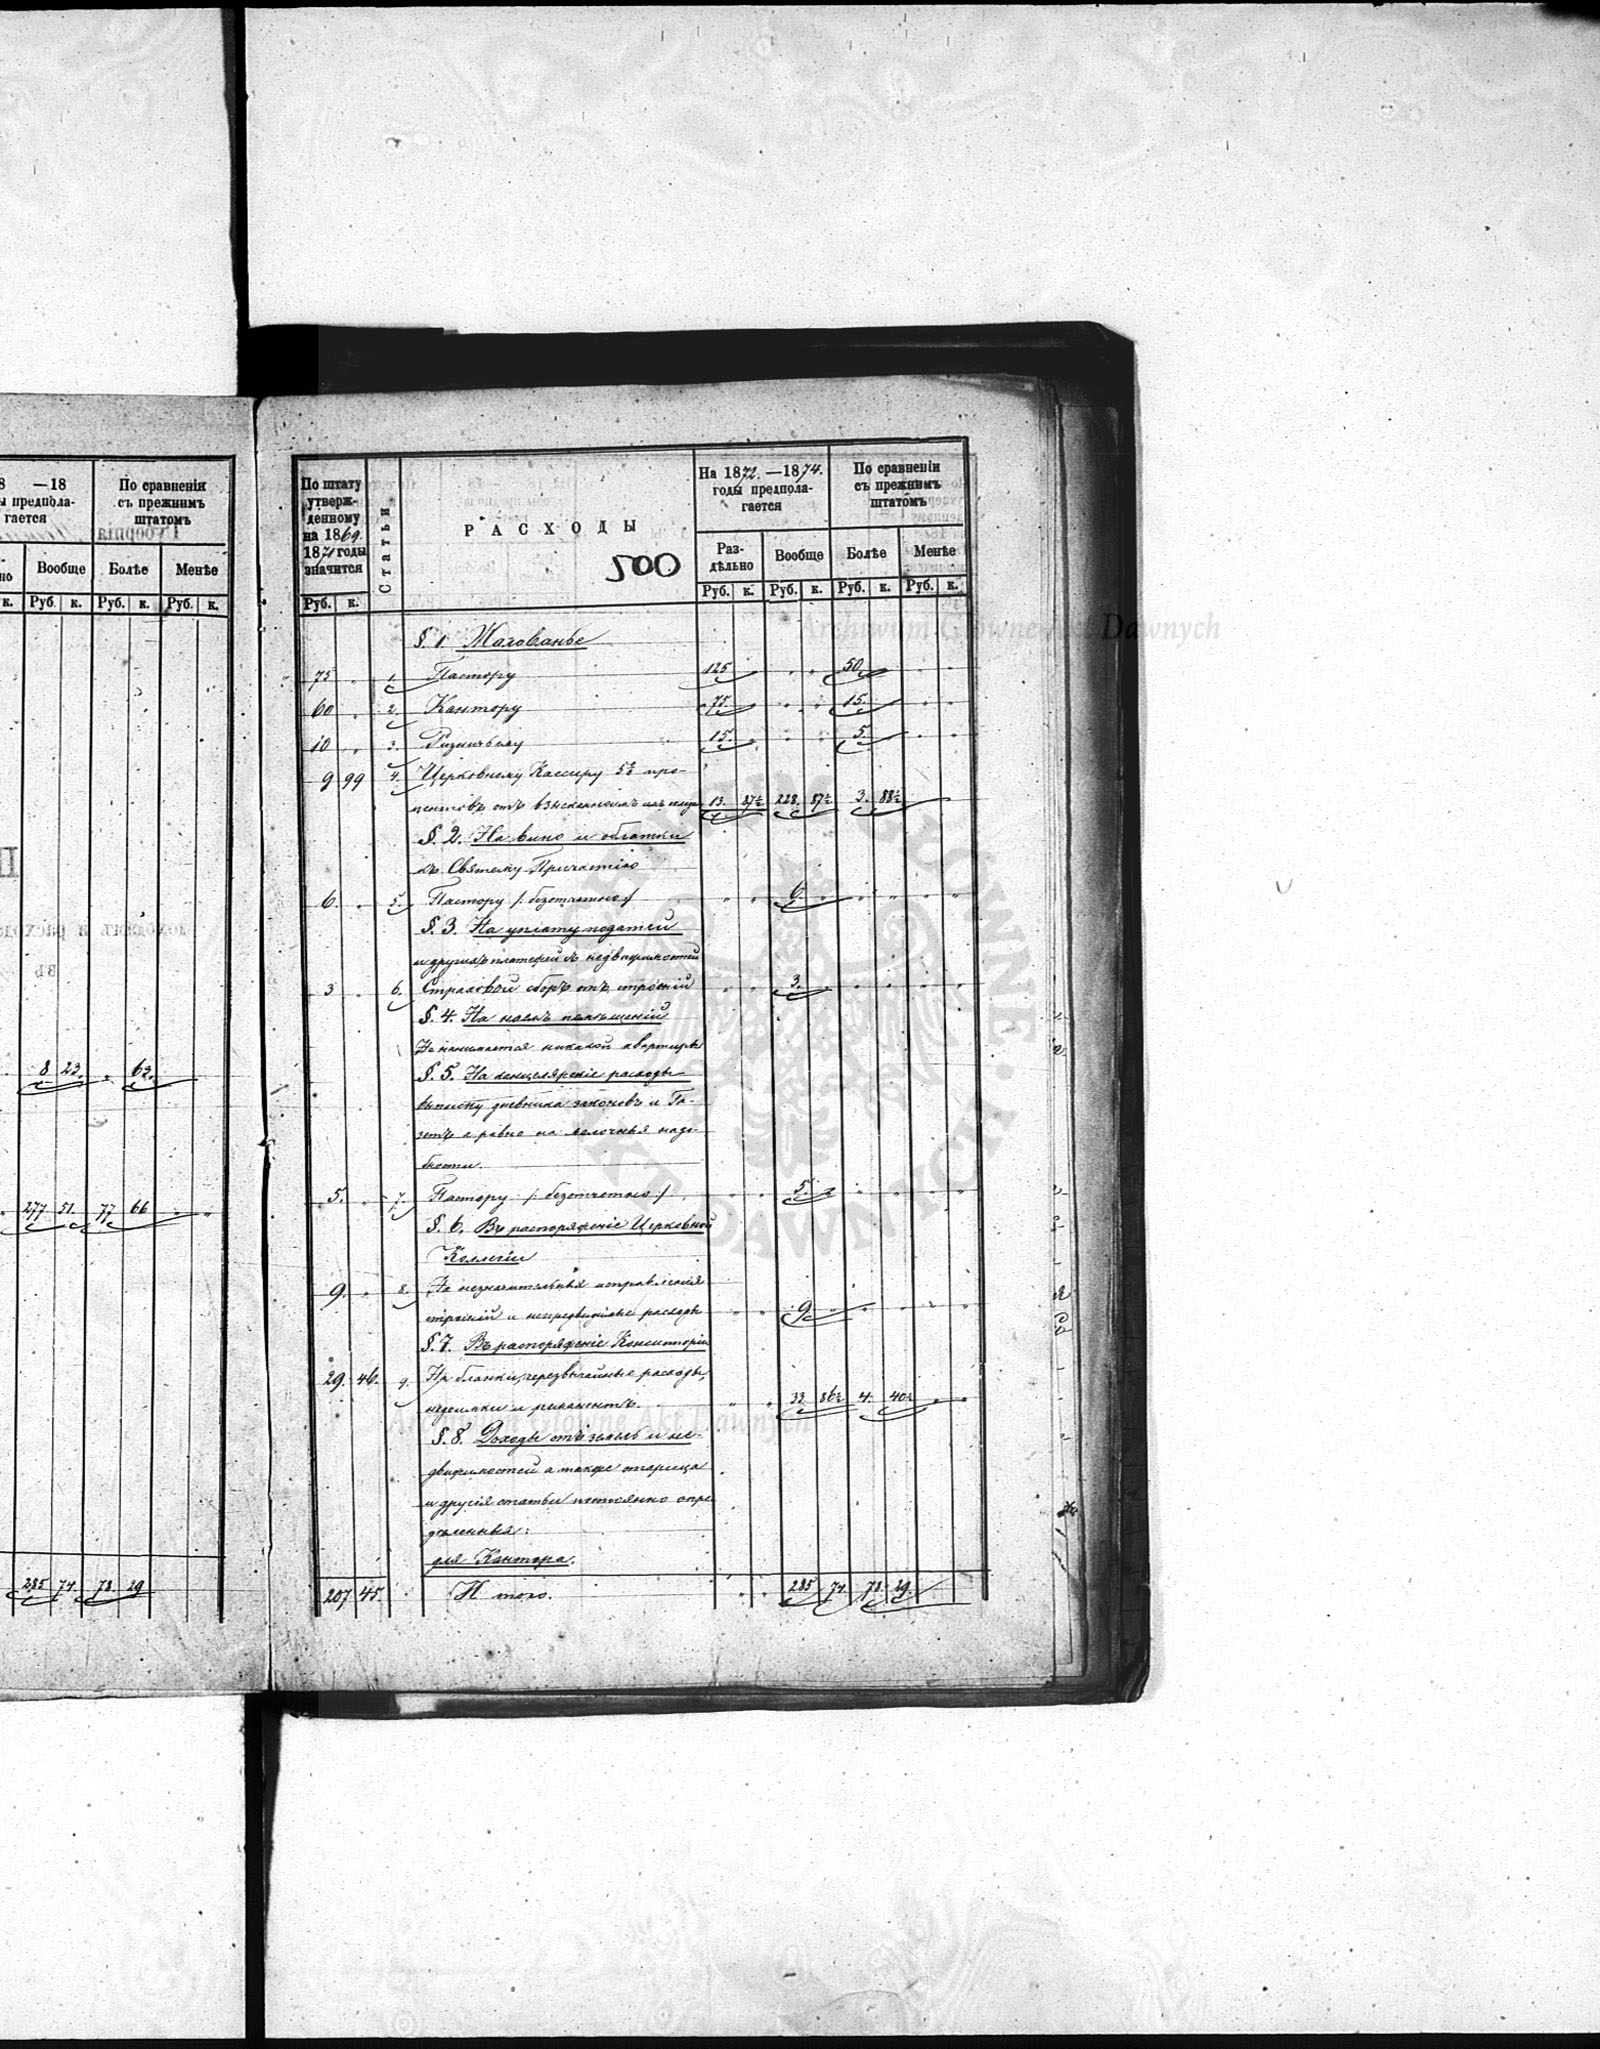 8 —18
ы предпола-
гается
По сравненія
съ прежнимъ
штатомъ
но Вообще Болѣе Менѣе
к. Руб. к. Руб. к. Руб. к.
8 23. 63.
277 51. 77 66
285 74. 78. 29
По штату
утверж-
денному
на 1869.
1871 годы
значится
Руб. к.
Статьи
РАСХОДЫ
500
На 1872.—1874.
годы предпола-
гается
По сравненіи
съ прежнимъ
штатомъ
Раз-
дѣльно
Вообще Болѣе Менѣе
Руб. к. Руб. к. Руб. к. Руб. к.
Archiwum Główne Akt Dawnych
§. 1 Жалованье
75 1. Пастору 125 50
60 2. Кантору 75. 15.
10 3. Ризничьему 15. 5.
9 99 4. Церковному Кассиру 5½ про-
центовъ отъ 13. 87½ 228. 87½ 3. 88½
§. 2. На вино и облатки
къ Святому Причастію
6. 5. Пастору /: безотчетно :/ 6.
§. 3. На уплату податей
и другихъ платежей съ недвижимостей
3 6. Страховой сборъ отъ строеній 3.
§. 4. На наемъ помѣщеній
Не нанимается никакой квартиры
§. 5. На канцелярскіе расходы
выписку дневника законовъ и Га-
зетъ а равно на мелочныя надо-
бности.
5. 7. Пастору /: безотчетно :/ 5.
§. 6. Въ распоряженіе Церковной
Коллегіи
9. 8. На незначительныя исправленія
строеній и непредвидимые расходы 9
§. 7. Въ распоряженіе Консисторіи
29. 46. 9. На бланки, черезвычайные расходы,
недоимки и ремонентъ. 33. 86½ 4. 40½
Archiwum Główne Akt Dawnych
§. 8. Доходы отъ земель и не-
движимостей а также
и другія статьи постоянно опре
дѣленныя:
для Кантора.
207 45. Итого. 285 74. 78. 29.